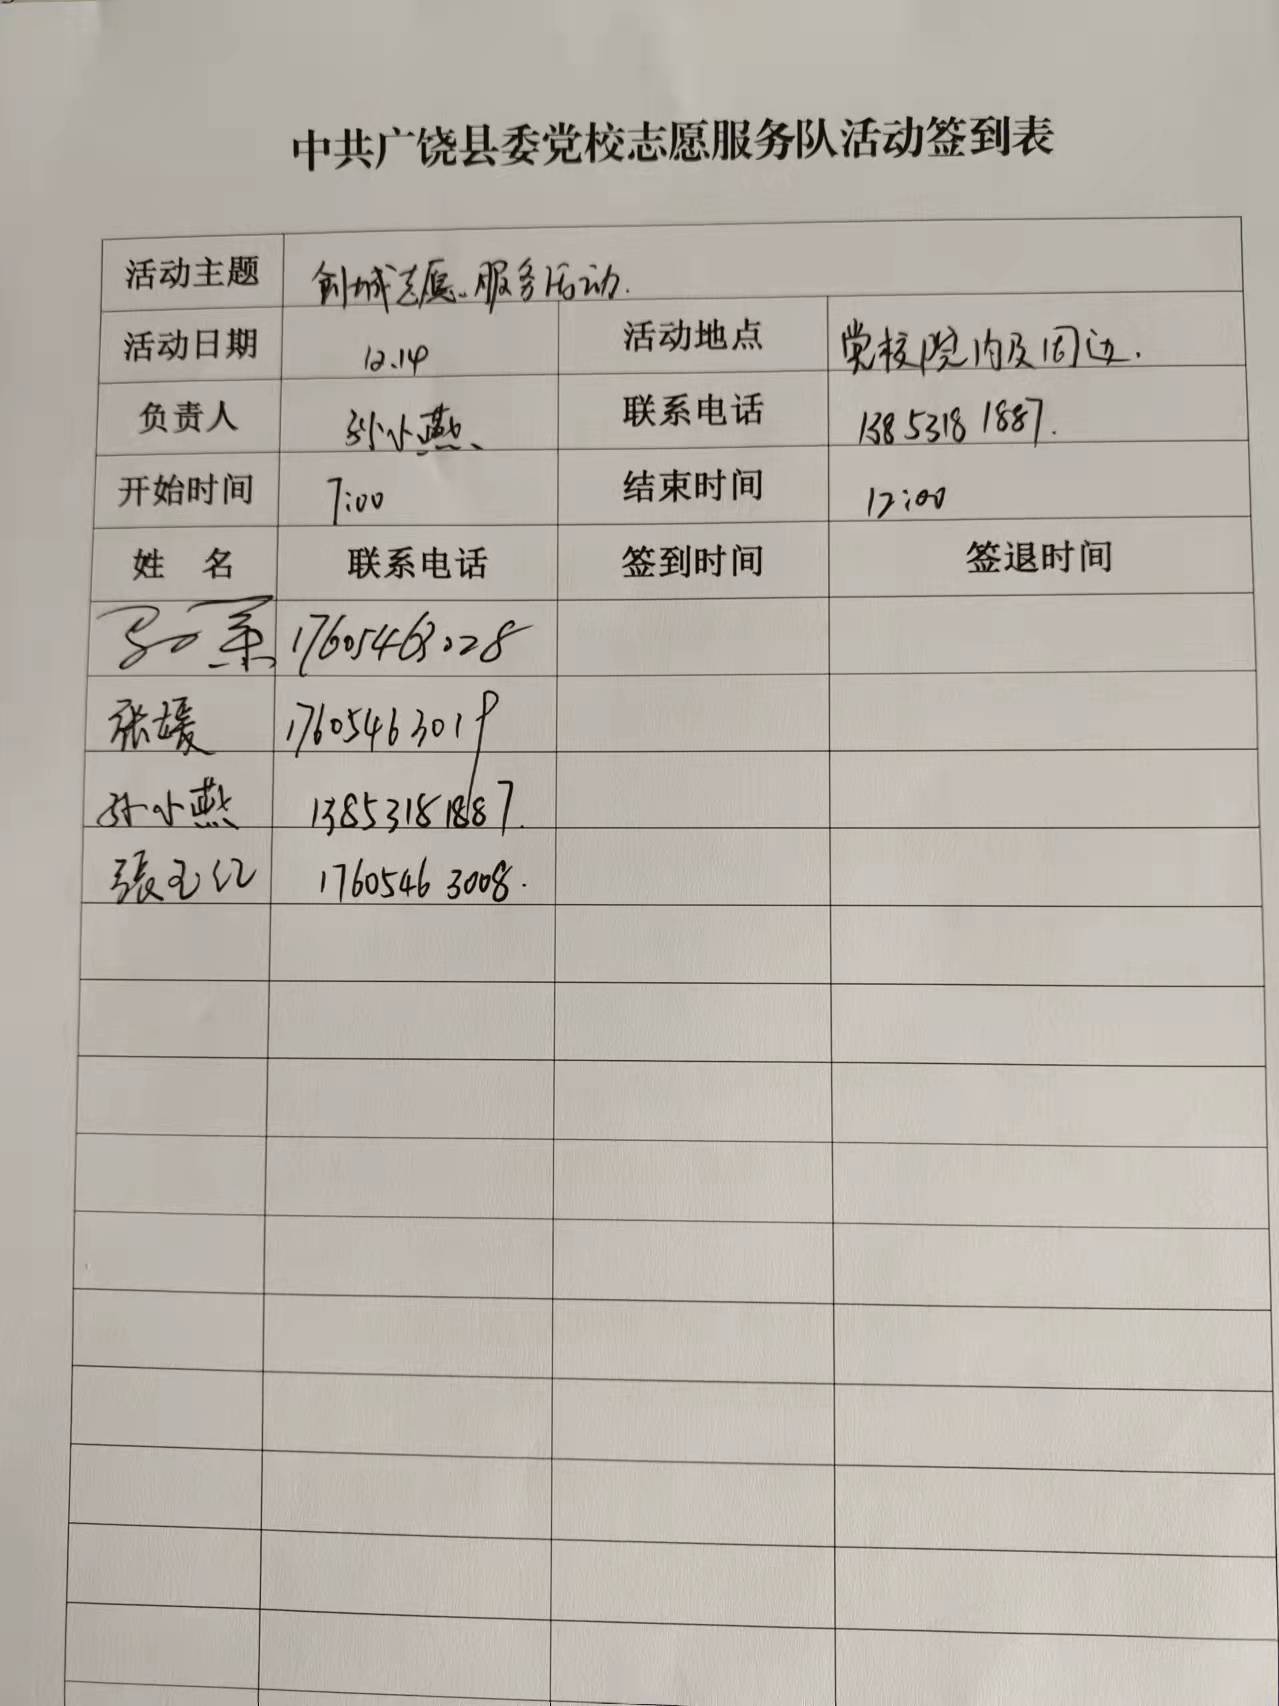 中共广饶县委党校志愿服务队活动签到表
活动主题 创城志愿服务活动.
活动日期 12.14 活动地点 党校院内及周边.
负责人 孙小燕 联系电话 13853181887.
开始时间 7:00 结束时间 12:00
姓 名 联系电话 签到时间 签退时间
17605463028
张媛 17605463019
孙小燕 13853181887.
張玉红 17605463008.